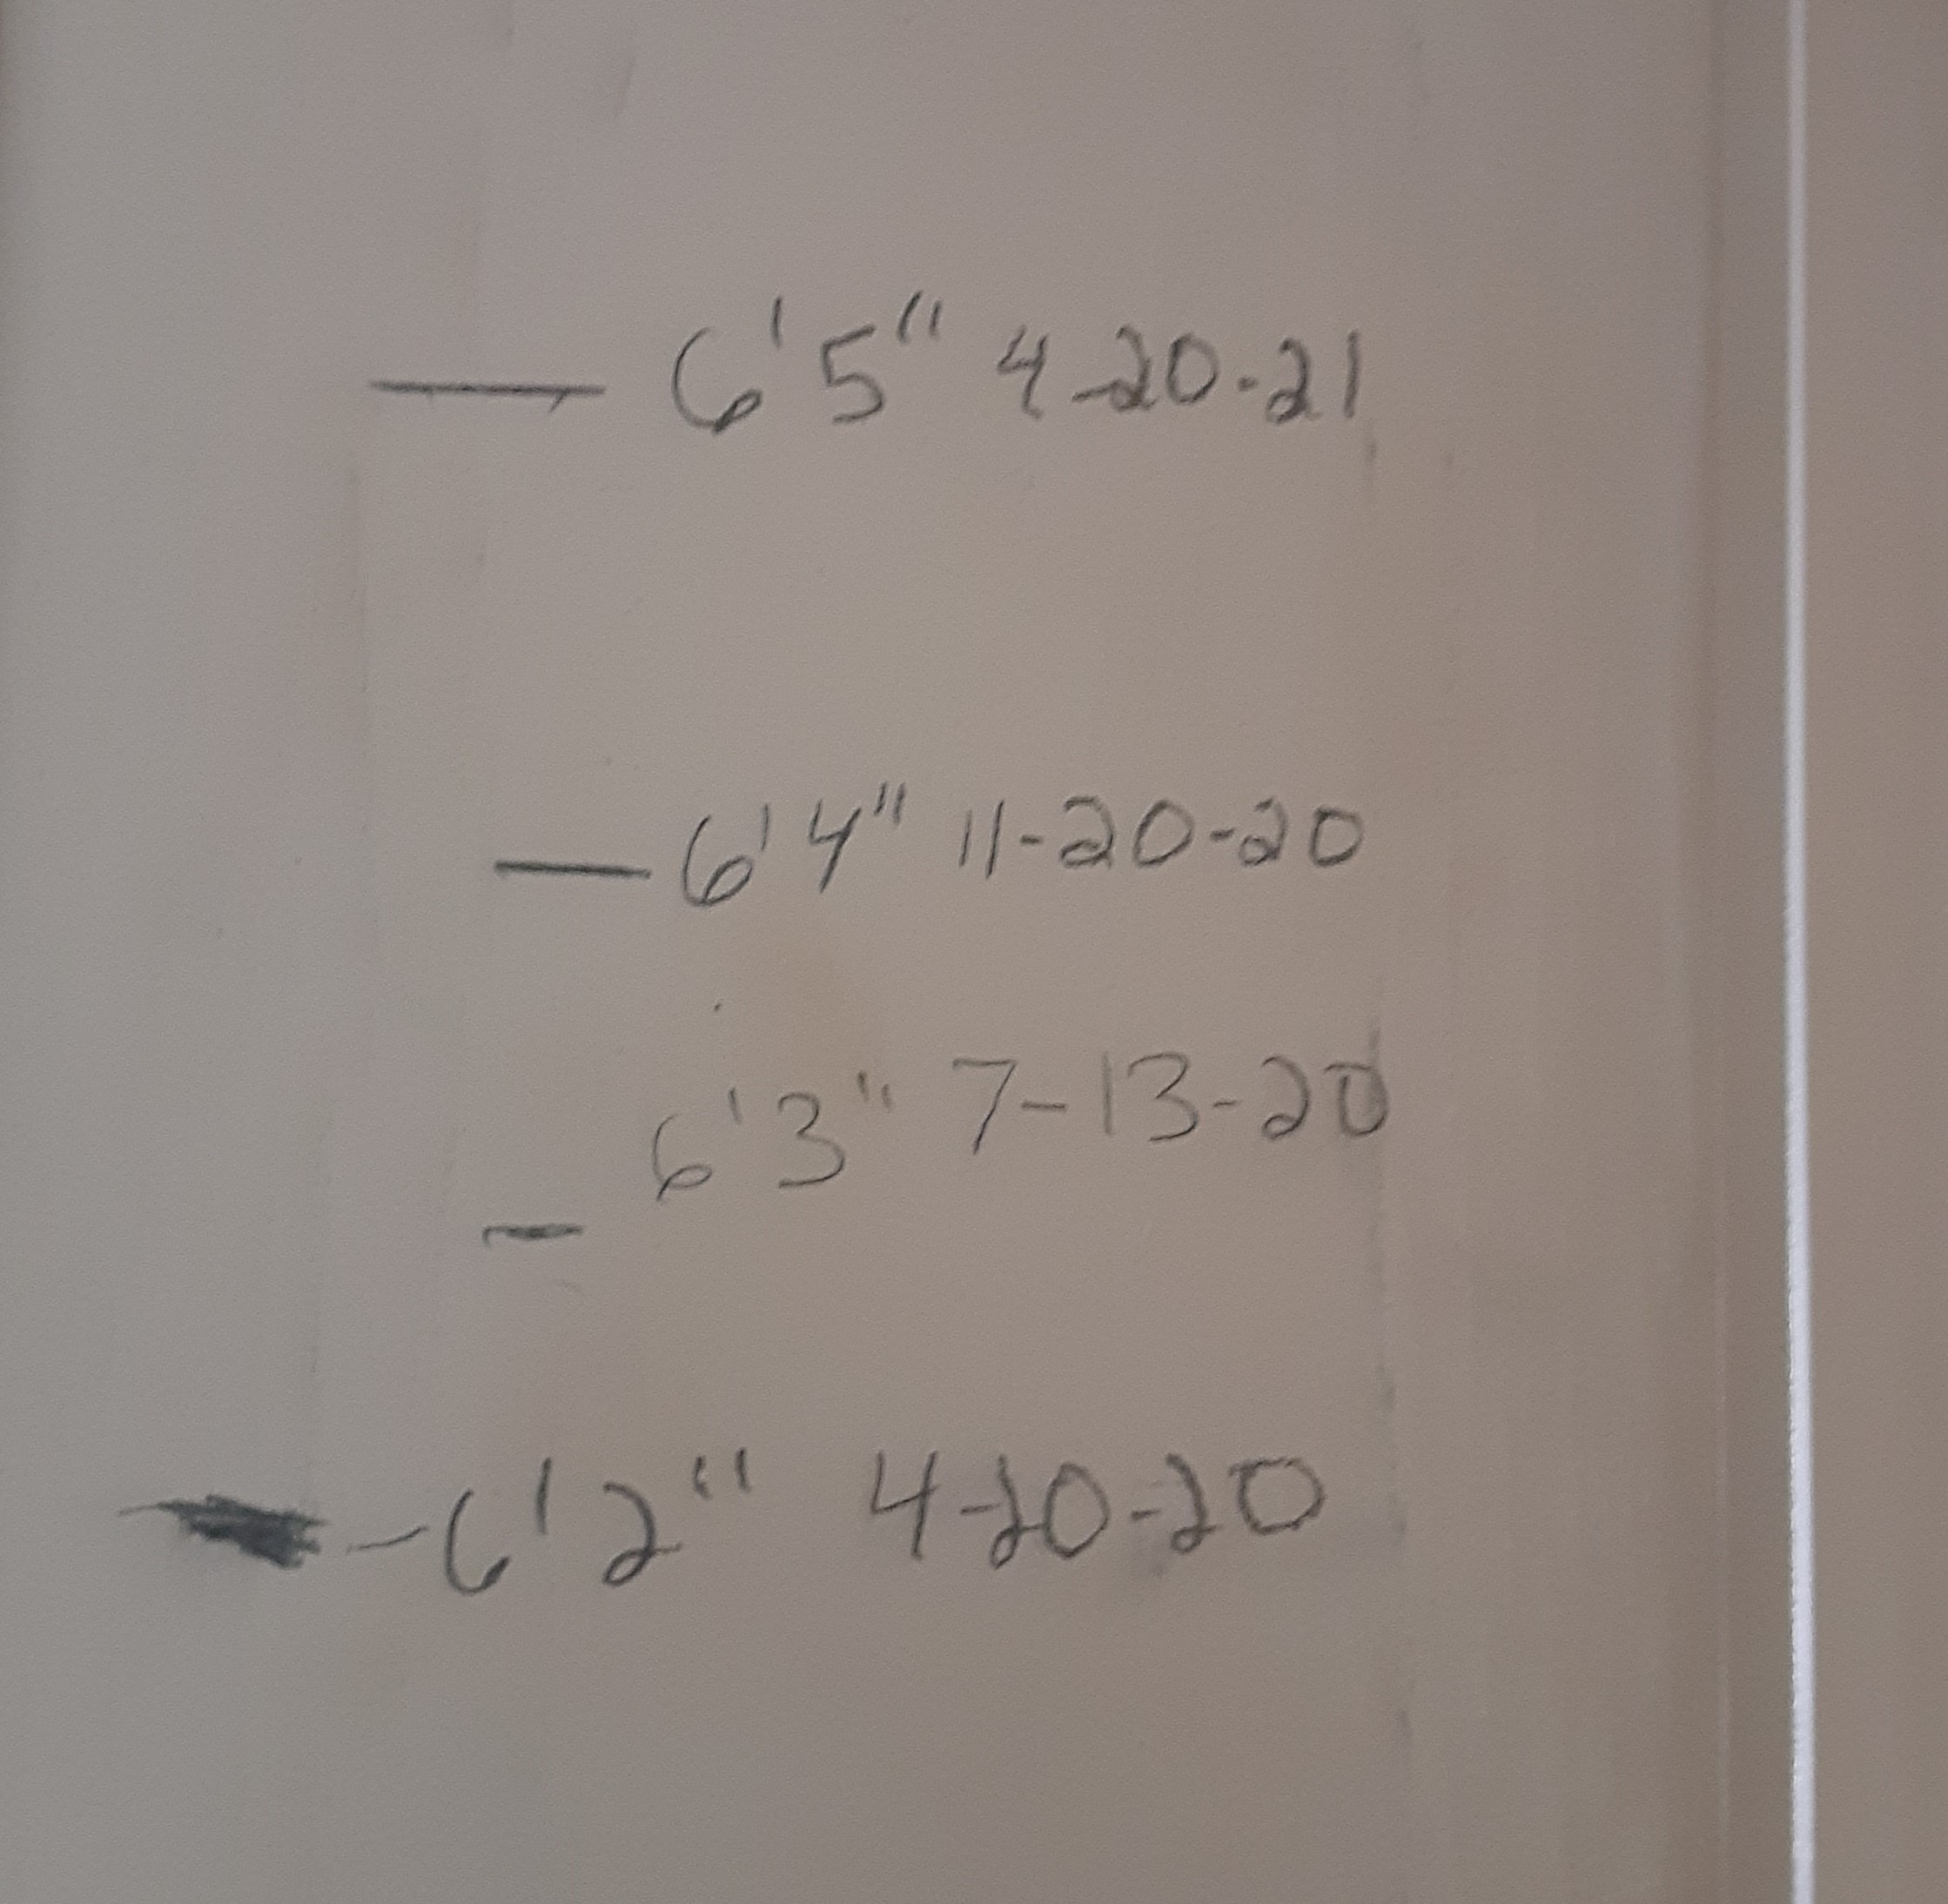 — 6'5" 4-20-21
— 6'4" 11-20-20
— 6'3" 7-13-20
- 6'2" 4-20-20